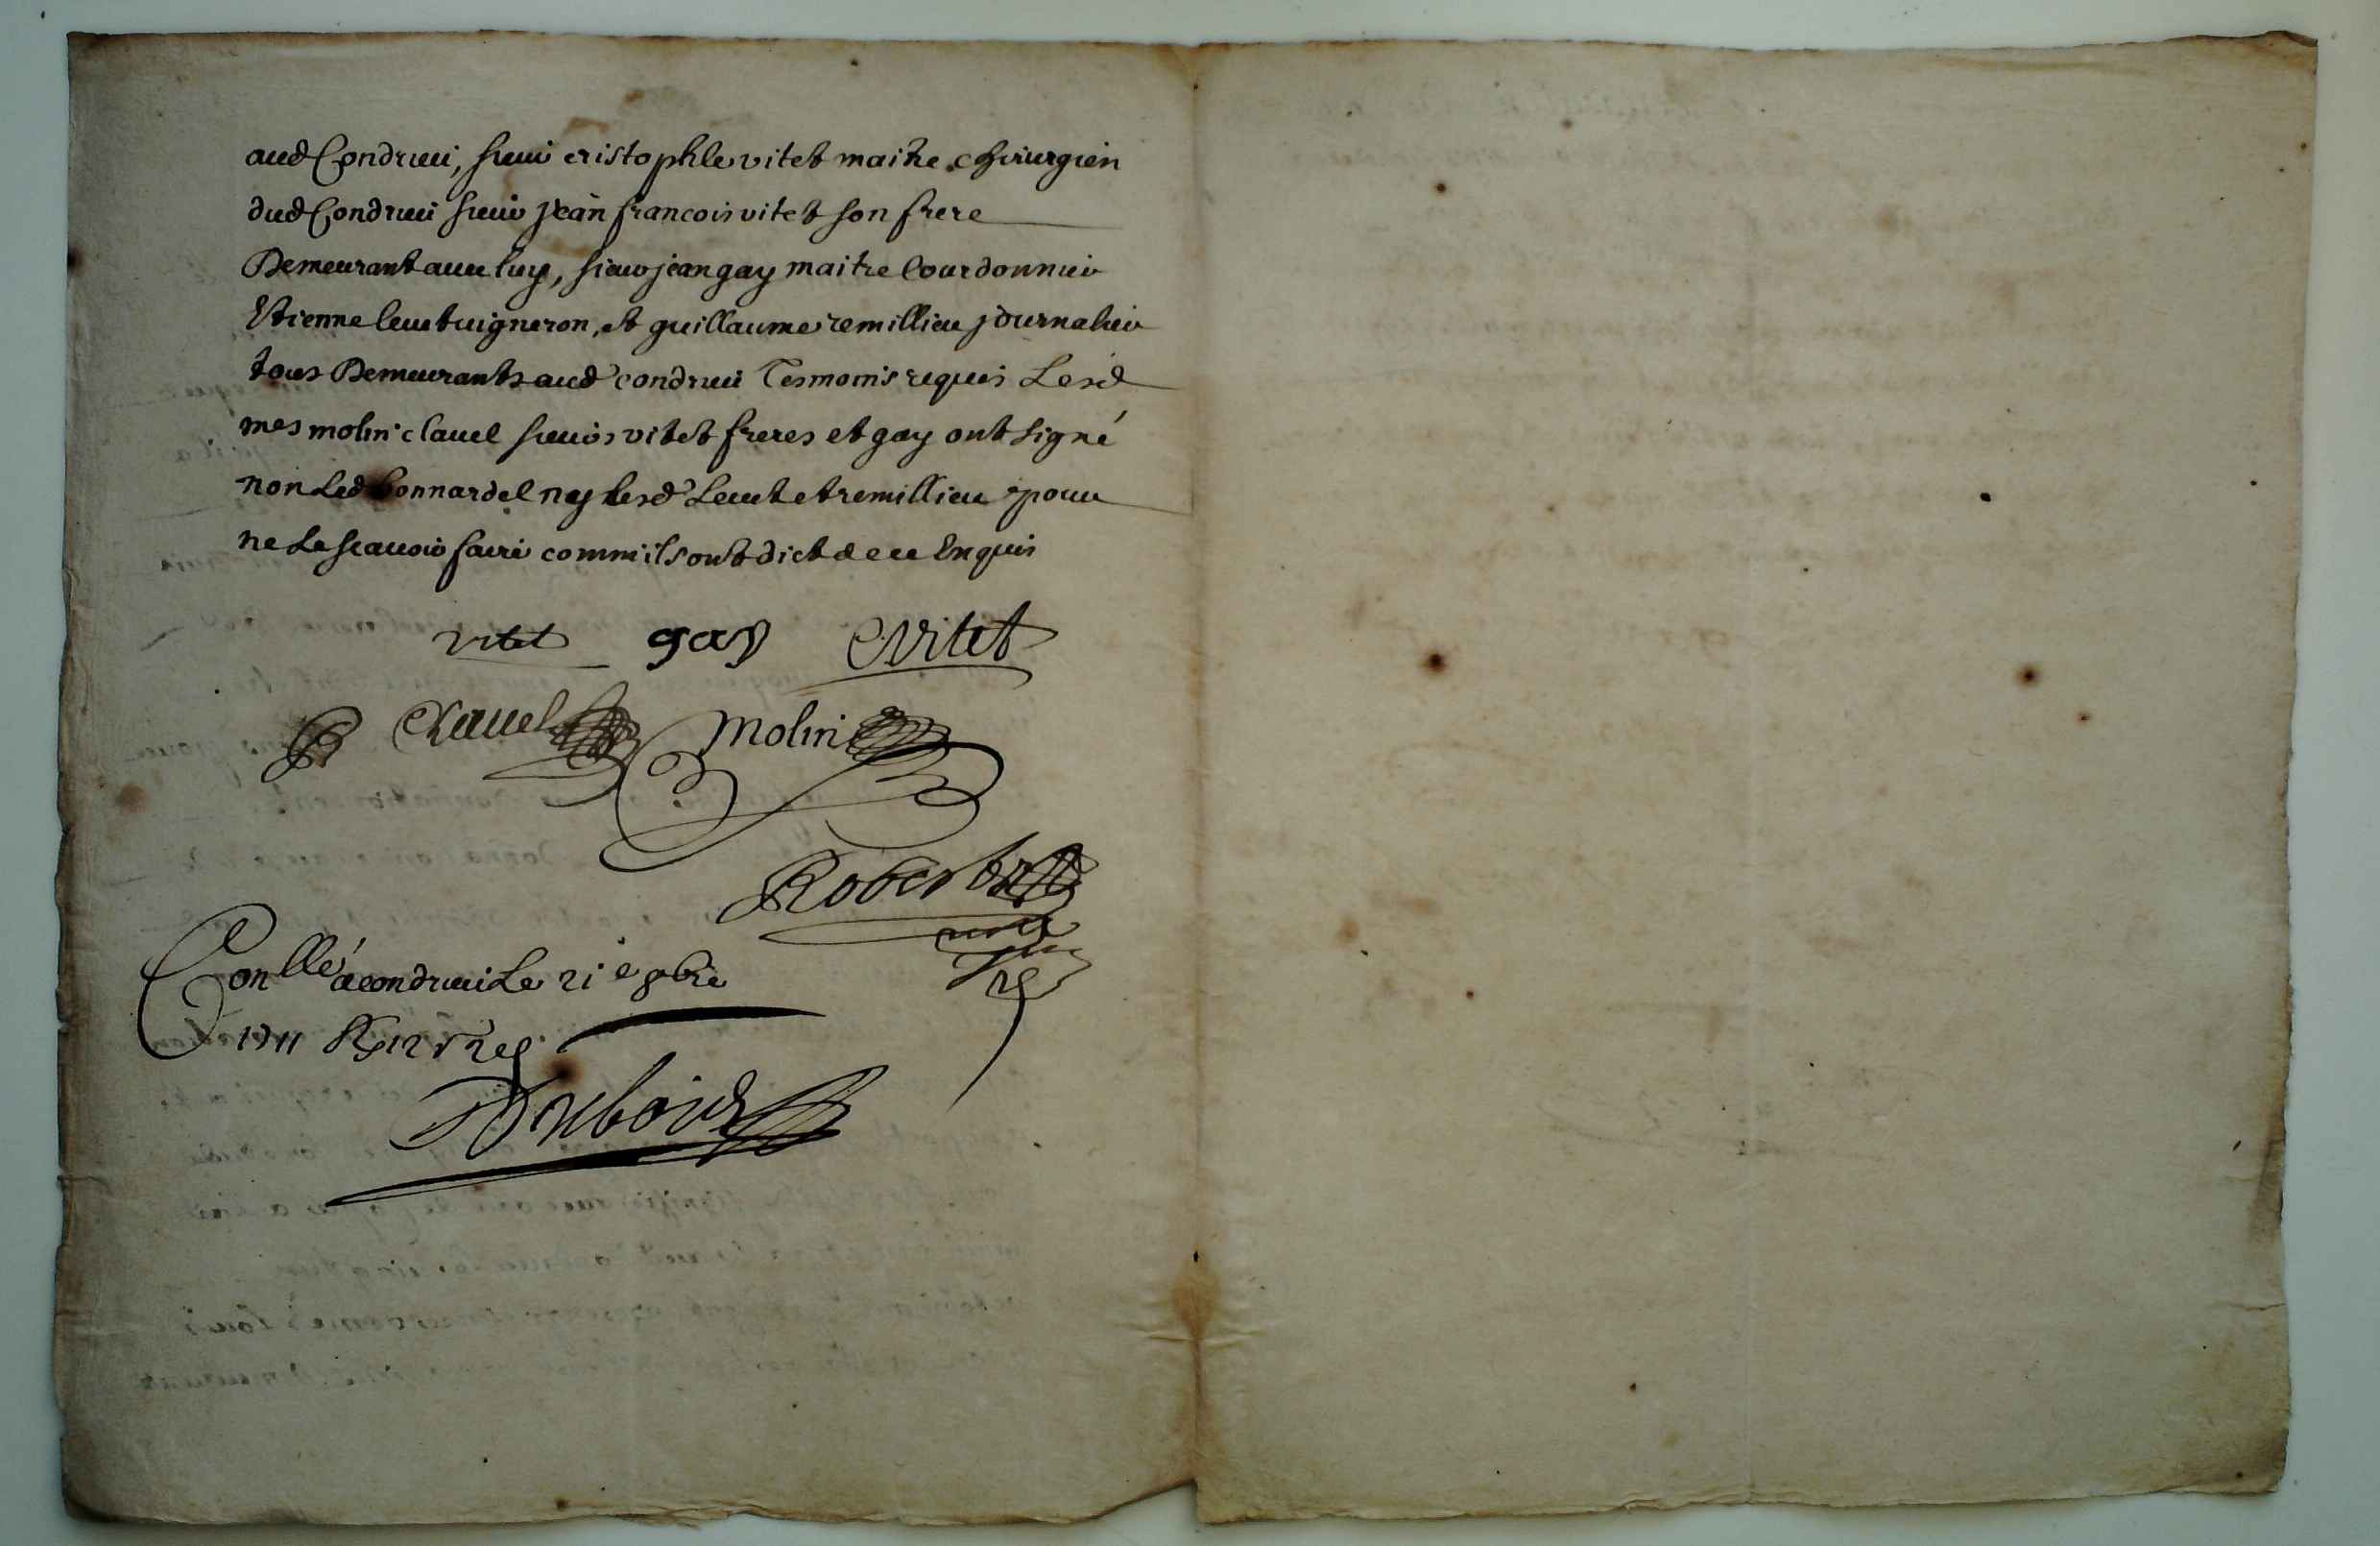 aud Condrieu, sieur cristophle vitet maitre chirurgien
dud Condrieu sieur jean francois vitet son frere
Demeurant avec luy, sieur jean gay maitre Courdonnier
Etienne vigneron, et guillaume remillieu journalier
tous Demeurants aud condrieu Tesmoins requis Lesd
mes molin clavel sieurs vitet freres et gay ont signé
non Led bonnardel ny lesd et remillieu pour
ne Le scavoir faire comm ils ont dict de ce Enquis
vitet gay C vitet
Clavel Molin
Robert
Conllé a condrieu Le 21e 9bre
1711
Dubois